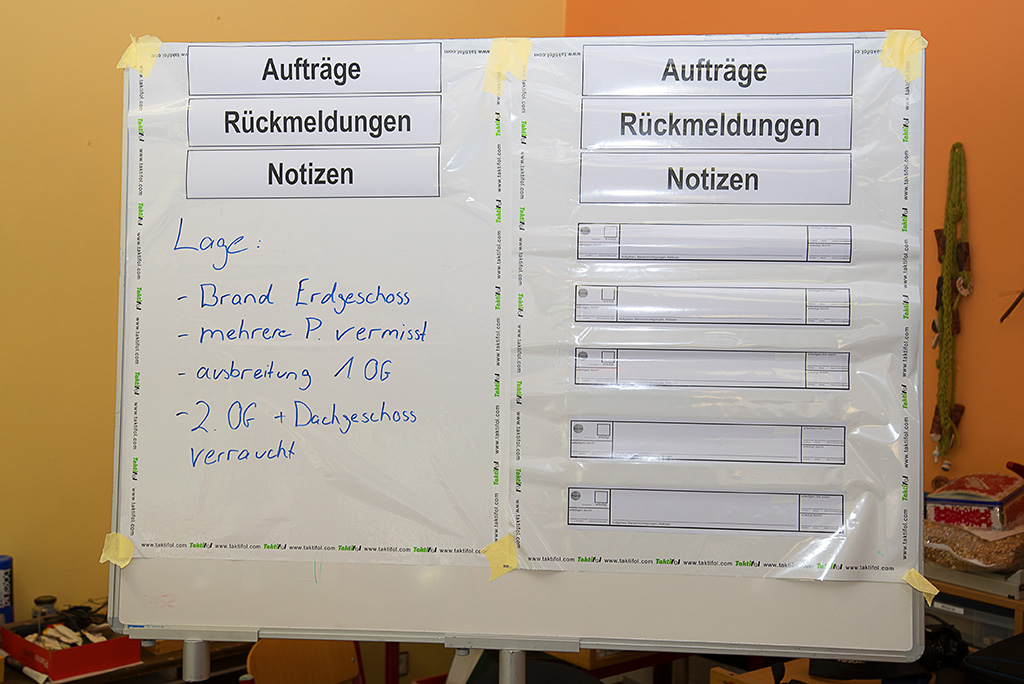 Aufträge
Rückmeldungen
Notizen
Lage:
- Brand Erdgeschoss
- mehrere P. vermisst
- ausbreitung 1 OG
- 2. OG + Dachgeschoss
verraucht
www.taktifol.com Taktifol www.taktifol.com Taktifol www.taktifol.com Taktifol www.taktifol.com Taktifol www.taktifol.com
Aufträge
Rückmeldungen
Notizen
www.taktifol.com Taktifol www.taktifol.com Taktifol www.taktifol.com Taktifol www.taktifol.com Taktifol www.taktifol.com